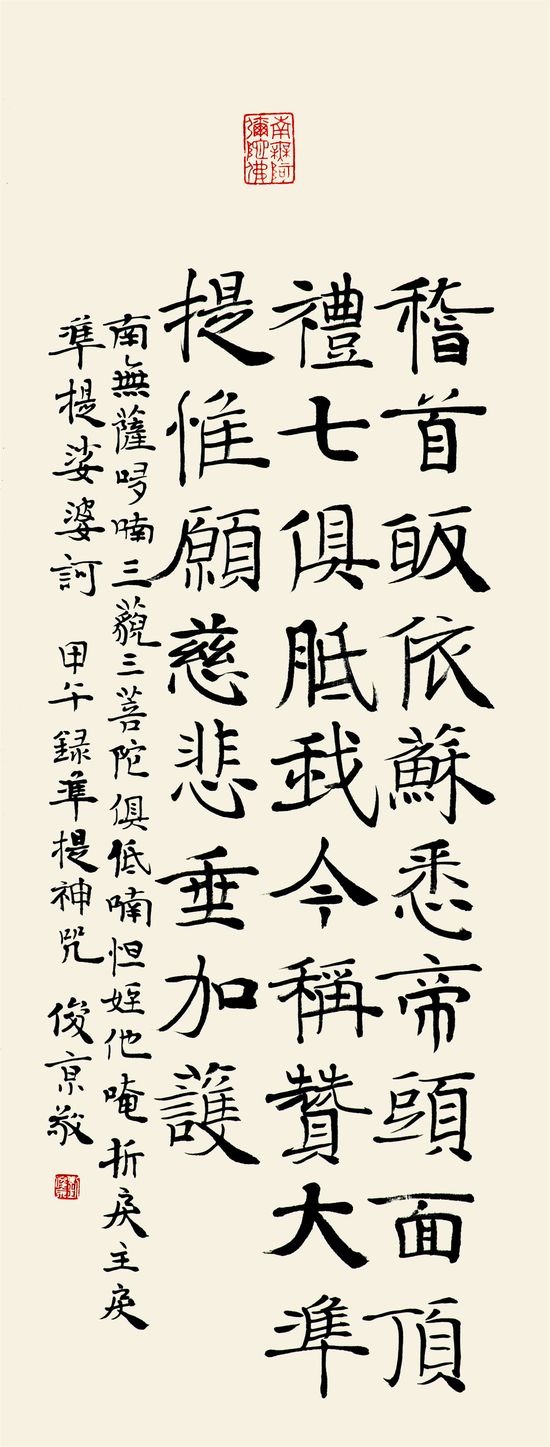 南無阿
彌陀佛
稽首皈依蘇悉帝頭面頂
禮七俱胝我今稱贊大準
提惟願慈悲垂加護
南無薩哆喃三藐三菩陀俱低喃怛姪他唵折戾主戾
準提娑婆訶 甲午録準提神咒 俊京敬